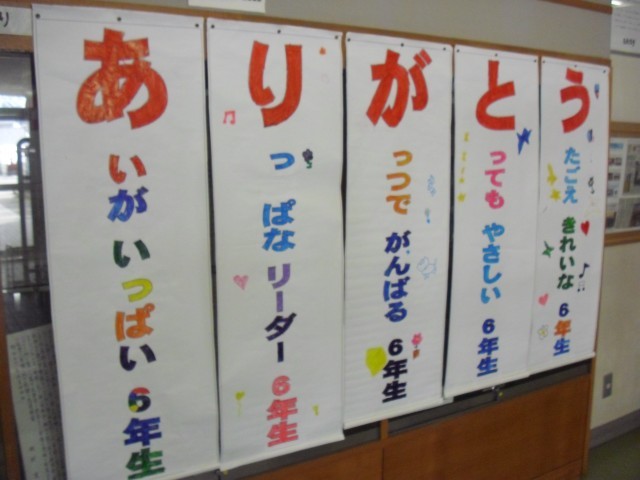 ありがとう
あいが いっぱい 6年生
りっぱな リーダー 6年生
がっつで がんばる 6年生
とっても やさしい 6年生
うたごえ きれいな 6年生